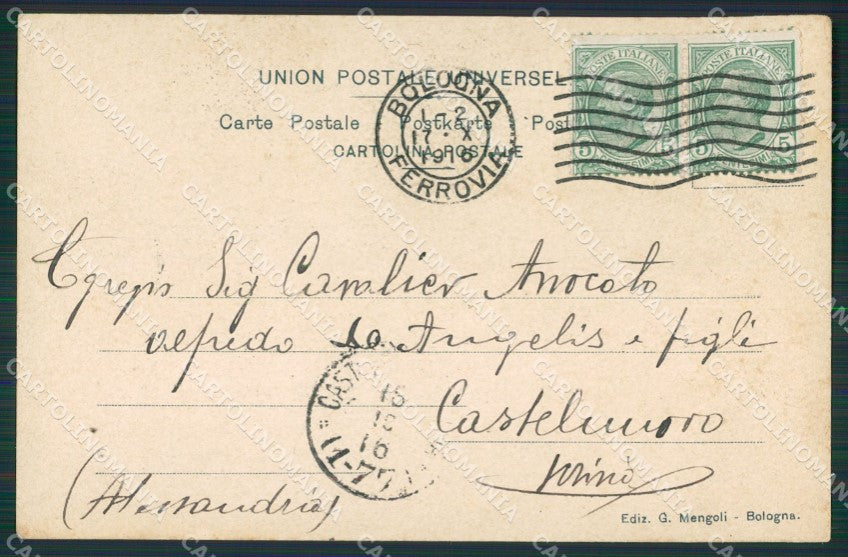 UNION POSTALE UNIVERSEL
Carte Postale Postkarte Post
CARTOLINA POSTALE
BOLOGNA
1-2
17 X
1916
FERROVIA
POSTE ITALIANE POSTE ITALIANE
5 5 5 5
Egregio Sig Cavalier Avocato
Alfredo De Angelis e figli
Castelnuovo
(Alessandria)
CAST
16
(1-7)
Ediz. G. Mengoli - Bologna.
CARTOLINOMANIA